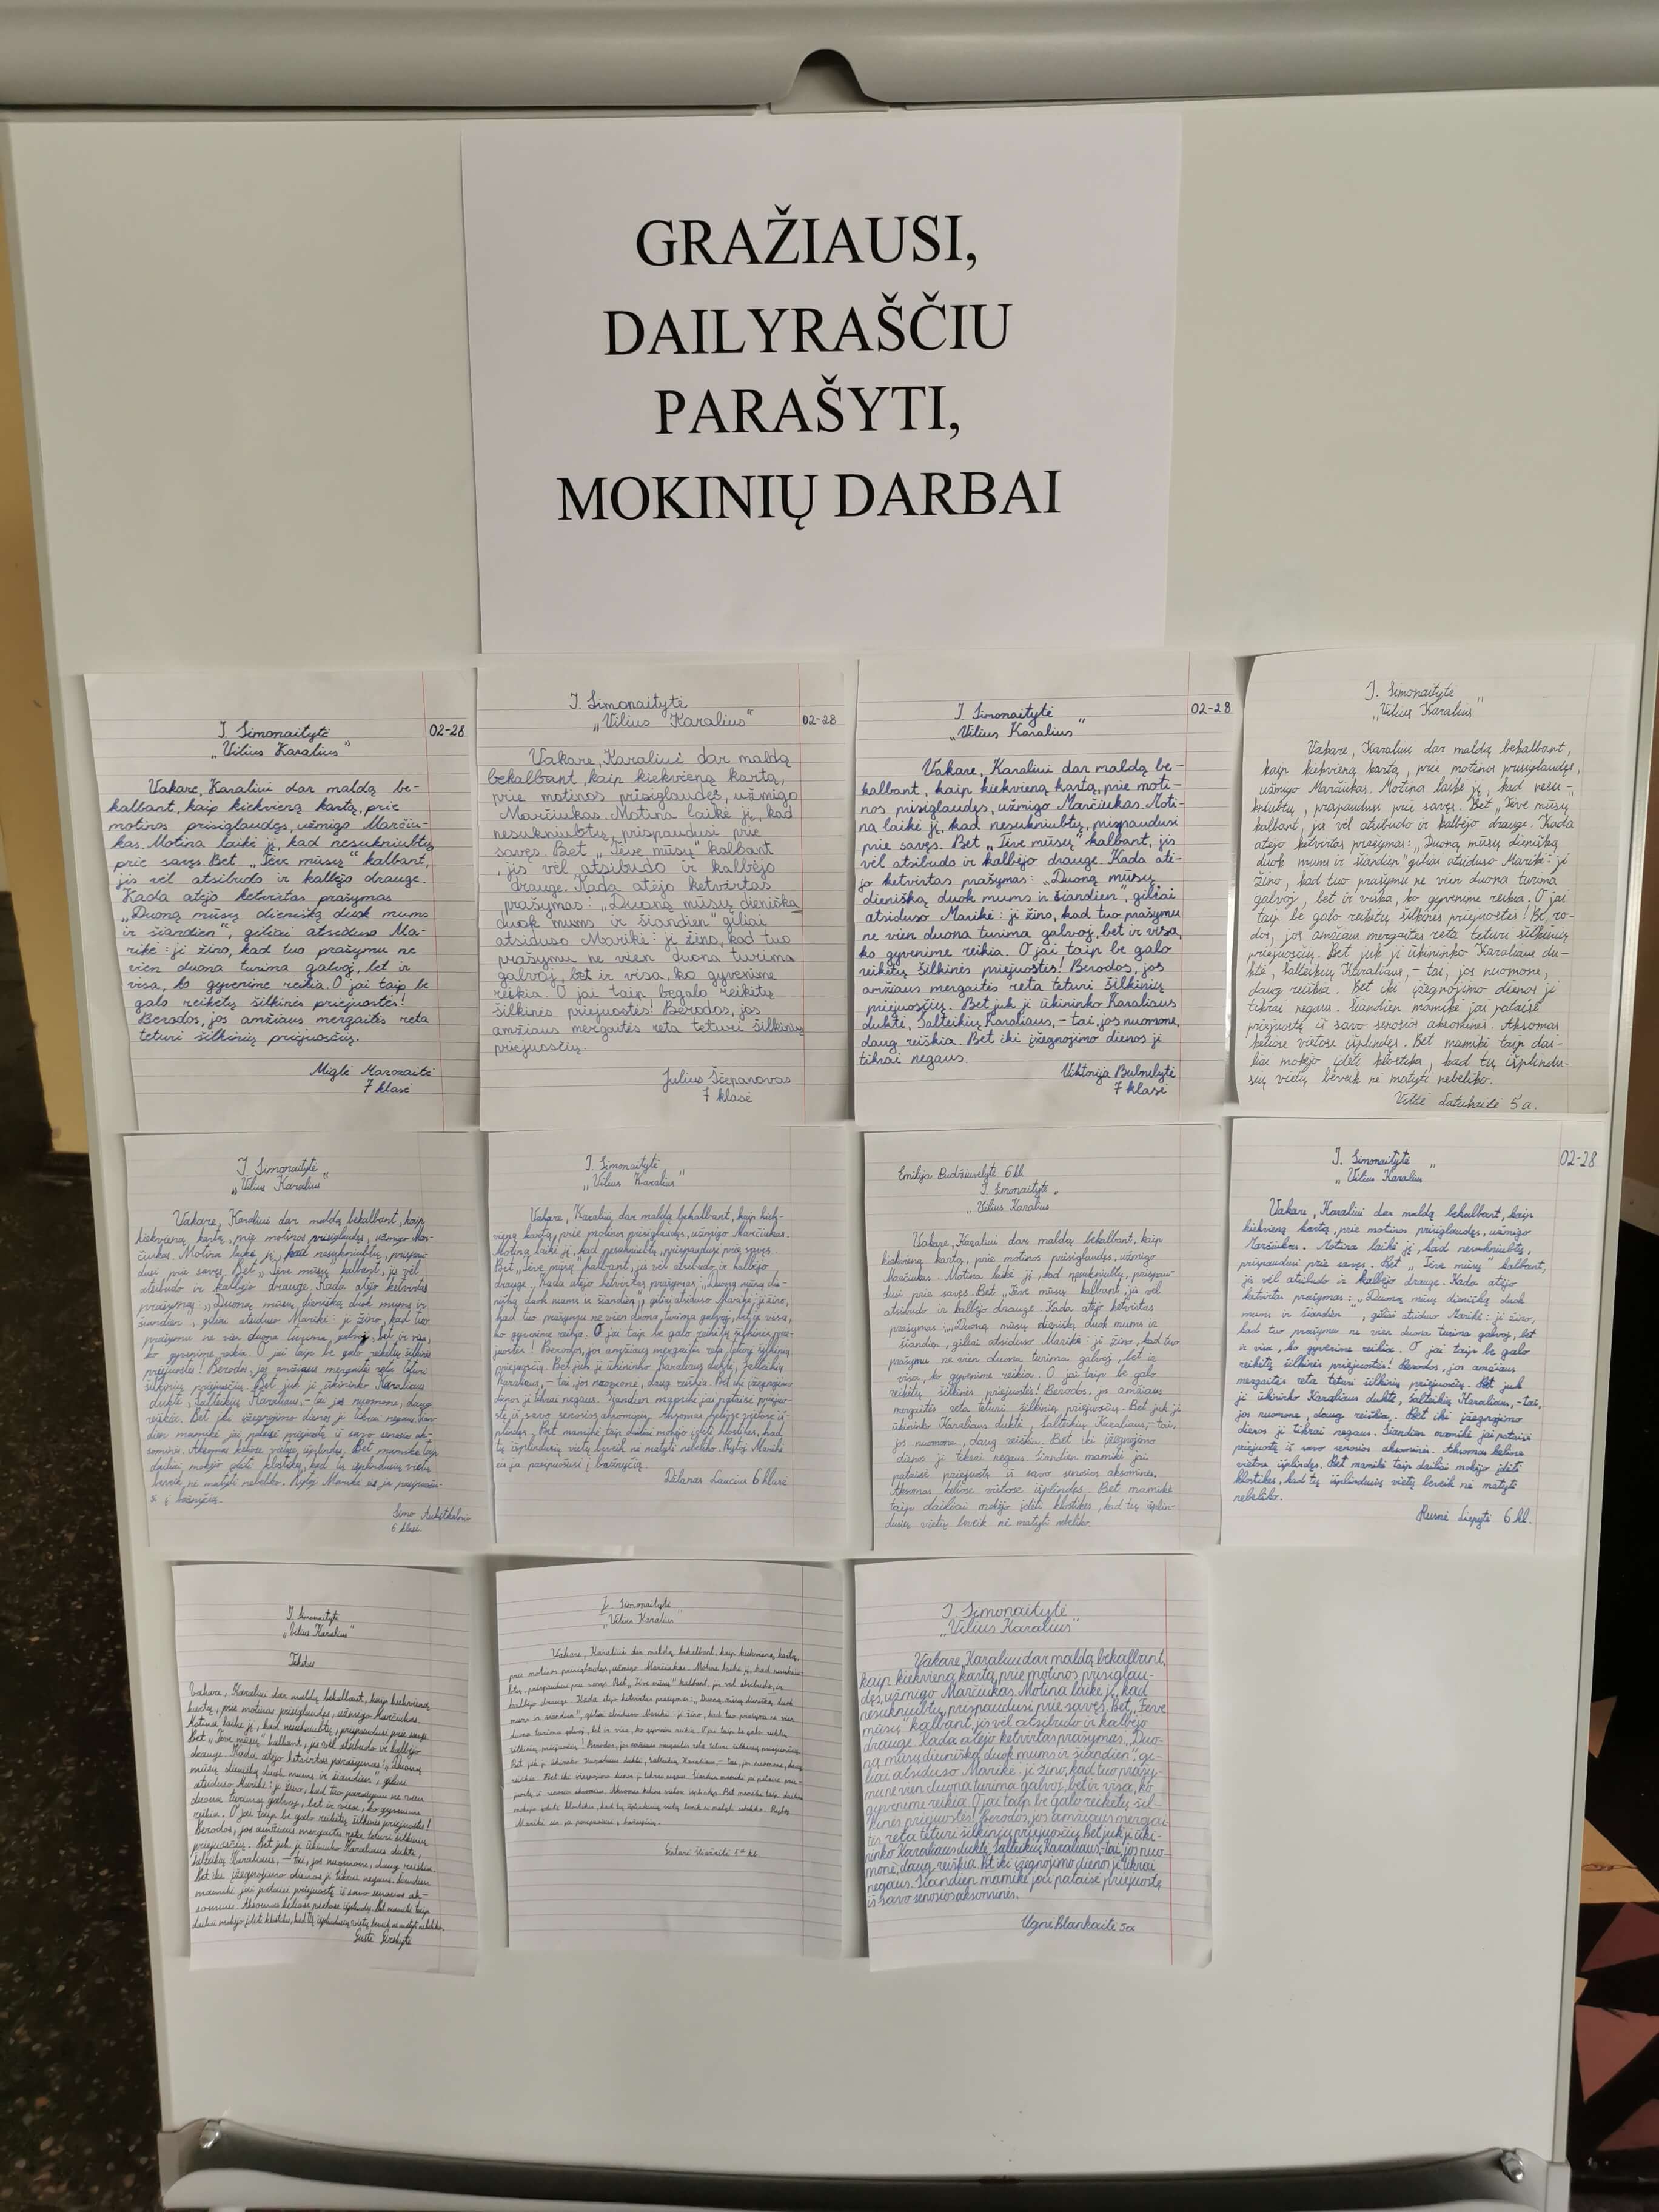 GRAŽIAUSI,
DAILYRAŠČIU
PARAŠYTI,
MOKINIŲ DARBAI
I. Simonaitytė
„Vilius Karalius“
02-28
Vakare, Karaliui dar maldą be-
kalbant, kaip kiekvieną kartą, prie
motinos prisiglaudęs, užmigo Marčiu-
kas. Motina laikė jį, kad nesukniubtų,
prie savęs. Bet „Tėve mūsų“ kalbant,
jis vėl atsibudo ir kalbėjo drauge.
Kada atėjo ketvirtas prašymas
„Duoną mūsų dienišką duok mums
ir šiandien“, giliai atsiduso Ma-
rikė: ji žino, kad tuo prašymu ne
vien duona turima galvoj, bet ir
visa, ko gyvenime reikia. O jai taip be
galo reikėtų šilkinės priejuostės!
Berodos, jos amžiaus mergaitės reta
teturi šilkinių priejuosčių.
Miglė Marozaitė
7 klasė
I. Simonaitytė
„Vilius Karalius“
02-28
Vakare, Karaliui dar maldą
bekalbant, kaip kiekvieną kartą,
prie motinos prisiglaudęs, užmigo
Marčiukas. Motina laikė jį, kad
nesukniubtų, prispaudusi prie
savęs. Bet „Tėve mūsų“ kalbant
, jis vėl atsibudo ir kalbėjo
drauge. Kada atėjo ketvirtas
prašymas: „Duoną mūsų dienišką
duok mums ir šiandien“ giliai
atsiduso Marikė: ji žino, kad tuo
prašymu ne vien duona turima
galvoj, bet ir visa, ko gyvenime
reikia. O jai taip begalo reikėtų
šilkinės priejuostės! Berodos, jos
amžiaus mergaitės reta teturi šilkinių
priejuosčių.
Julius Ščepanovas
7 klasė
I. Simonaitytė
„Vilius Karalius“
02-28
Vakare, Karaliui dar maldą be-
kalbant, kaip kiekvieną kartą, prie moti-
nos prisiglaudęs, užmigo Marčiukas. Moti-
na laikė jį, kad nesukniubtų, prispaudusi
prie savęs. Bet „Tėve mūsų“ kalbant, jis
vėl atsibudo ir kalbėjo drauge. Kada atė-
jo ketvirtas prašymas: „Duoną mūsų
dienišką duok mums ir šiandien“, giliai
atsiduso Marikė: ji žino, kad tuo prašymu
ne vien duona turima galvoj, bet ir visa,
ko gyvenime reikia. O jai taip be galo
reikėtų šilkinės priejuostės! Berodos, jos
amžiaus mergaitės reta teturi šilkinių
priejuosčių. Bet juk ji ūkininko Karaliaus
duktė, Šalteikių Karaliaus, – tai, jos nuomone,
daug reiškia. Bet iki įžegnojimo dienos ji
tikrai negaus.
Viktorija Bubnelytė
7 klasė
I. Simonaitytė
„Vilius Karalius“
Vakare, Karaliui dar maldą bekalbant,
kaip kiekvieną kartą, prie motinos prisiglaudęs,
užmigo Marčiukas. Motina laikė jį, kad nesu-
kniubtų, prispaudusi prie savęs. Bet „Tėve mūsų
kalbant, jis vėl atsibudo ir kalbėjo drauge. Kada
atėjo ketvirtas prašymas: „Duoną mūsų dienišką
duok mums ir šiandien“ giliai atsiduso Marikė: ji
žino, kad tuo prašymu ne vien duona turima
galvoj, bet ir viska, ko gyvenime reikia. O jai
taip be galo reikėtų šilkinės priejuostės! Be, ro-
dos, jos amžiaus mergaitės reta teturi šilkinių
priejuosčių. Bet juk ji ūkininko Karaliaus du-
ktė, Šalteikių Karaliaus, – tai, jos nuomone,
daug reiškia. Bet iki įžegnojimo dienos ji
tikrai negaus. Šiandien mamikė jai pataisė
priejuostę iš savo senosios aksominės. Aksomas
keliose vietose išplindęs. Bet mamikė taip dai-
liai mokėjo įdėti klostikes, kad tų išplindu-
sių vietų beveik nė matyti nebeliko.
5a.
I. Simonaitytė
„Vilius Karalius“
Vakare, Karaliui dar maldą bekalbant, kaip
kiekvieną kartą, prie motinos prisiglaudęs, užmigo Mar-
čiukas. Motina laikė jį, kad nesukniubtų, prispau-
dusi prie savęs. Bet „Tėve mūsų“ kalbant, jis vėl
atsibudo ir kalbėjo drauge. Kada atėjo ketvirtas
prašymas: „Duoną mūsų dienišką duok mums ir
šiandien“, giliai atsiduso Marikė: ji žino, kad tuo
prašymu ne vien duona turima galvoj, bet ir visa,
ko gyvenime reikia. O jai taip be galo reikėtų šilkinės
priejuostės! Berodos, jos amžiaus mergaitės reta teturi
šilkinių priejuosčių. Bet juk ji ūkininko Karaliaus
duktė, Šalteikių Karaliaus, – tai jos nuomone, daug
reiškia. Bet iki įžegnojimo dienos ji tikrai negaus. Šian-
dien mamikė jai pataisė priejuostę iš savo senosios ak-
sominės. Aksomas keliose vietose išplindęs. Bet mamikė taip
dailiai mokėjo įdėti klostikes, kad tų išplindusių vietų
beveik nė matyti nebeliko. Rytoj Marikė eis ja pasipuošu-
si į bažnyčią.
6 klasė
I. Simonaitytė
„Vilius Karalius“
Vakare, Karaliui dar maldą bekalbant, kaip kiek-
vieną kartą, prie motinos prisiglaudęs, užmigo Marčiukas.
Motina laikė jį, kad nesukniubtų, prispaudusi prie savęs.
Bet „Tėve mūsų“ kalbant, jis vėl atsibudo ir kalbėjo
drauge. Kada atėjo ketvirtas prašymas: „Duoną mūsų die-
nišką duok mums ir šiandien“, giliai atsiduso Marikė: ji žino,
kad tuo prašymu ne vien duona turima galvoj, bet ir visa,
ko gyvenime reikia. O jai taip be galo reikėtų šilkinės prie-
juostės! Berodos, jos amžiaus mergaitės reta teturi šilkinių
priejuosčių. Bet juk ji ūkininko Karaliaus duktė, Šalteikių
Karaliaus, – tai, jos nuomone, daug reiškia. Bet iki įžegnojimo
dienos ji tikrai negaus. Šiandien mamikė jai pataisė priejuo-
stę iš savo senosios aksominės. Aksomas keliose vietose iš-
plindęs. Bet mamikė taip dailiai mokėjo įdėti klostikes, kad
tų išplindusių vietų beveik nė matyti nebeliko. Rytoj Marikė
eis ja pasipuošusi į bažnyčią.
Deianas Laucius 6 klasė
Emilija Budžiuvelytė 6 kl.
I. Simonaitytė
„Vilius Karalius
Vakare, Karaliui dar maldą bekalbant, kaip
kiekvieną kartą, prie motinos prisiglaudęs, užmigo
Marčiukas. Motina laikė jį, kad nesukniubtų, prispau-
dusi prie savęs. Bet „Tėve mūsų kalbant jis vėl
atsibudo ir kalbėjo drauge. Kada atėjo ketvirtas
prašymas: „Duoną mūsų dienišką duok mums ir
šiandien, giliai atsiduso Marikė: ji žino, kad tuo
prašymu ne vien duona turima galvoj, bet ir
visa, ko gyvenime reikia. O jai taip be galo
reikėtų šilkinės priejuostės! Berodos, jos amžiaus
mergaitės reta teturi šilkinių priejuosčių. Bet juk ji
ūkininko Karaliaus duktė, Šalteikių Karaliaus, – tai,
jos nuomone, daug reiškia. Bet iki įžegnojimo
dienos ji tikrai negaus. Šiandien mamikė jai
pataisė priejuostę iš savo senosios aksominės.
Aksomas keliose vietose išplindęs. Bet mamikė
taip dailiai mokėjo įdėti klostikes, kad tų išplin-
dusių vietų beveik nė matyti nebeliko.
I. Simonaitytė
„Vilius Karalius“
02-28
Vakare, Karaliui dar maldą bekalbant, kaip
kiekvieną kartą, prie motinos prisiglaudęs, užmigo
Marčiukas. Motina laikė jį, kad nesukniubtų,
prispaudusi prie savęs. Bet „Tėve mūsų“ kalbant,
jis vėl atsibudo ir kalbėjo drauge. Kada atėjo
ketvirtas prašymas: „Duoną mūsų dienišką duok
mums ir šiandien“, giliai atsiduso Marikė: ji žino,
kad tuo prašymu ne vien duona turima galvoj, bet
ir visa, ko gyvenime reikia. O jai taip be galo
reikėtų šilkinės priejuostės! Berodos, jos amžiaus
mergaitės reta teturi šilkinių priejuosčių. Bet juk
ji ūkininko Karaliaus duktė, Šalteikių Karaliaus, – tai,
jos nuomone, daug reiškia. Bet iki įžegnojimo
dienos ji tikrai negaus. Šiandien mamikė jai pataisė
priejuostę iš savo senosios aksominės. Aksomas keliose
vietose išplindęs. Bet mamikė taip dailiai mokėjo įdėti
klostikes, kad tų išplindusių vietų beveik nė matyti
nebeliko.
Rusnė Liepytė 6 kl.
I. Simonaitytė
„Vilius Karalius“
Tekstas
Vakare, Karaliui dar maldą bekalbant, kaip kiekvieną
kartą, prie motinos prisiglaudęs, užmigo Marčiukas.
Motina laikė jį, kad nesukniubtų, prispaudusi prie savęs.
Bet „Tėve mūsų“ kalbant, jis vėl atsibudo ir kalbėjo
drauge. Kada atėjo ketvirtas prašymas: „Duoną
mūsų dienišką duok mums ir šiandien“, giliai
atsiduso Marikė: ji žino, kad tuo prašymu ne vien
duona turima galvoj, bet ir visa, ko gyvenime
reikia. O jai taip be galo reikėtų šilkinės priejuostės!
Berodos, jos amžiaus mergaitės reta teturi šilkinių
priejuosčių. Bet juk ji ūkininko Karaliaus duktė,
Šalteikių Karaliaus, – tai, jos nuomone, daug reiškia.
Bet iki įžegnojimo dienos ji tikrai negaus. Šiandien
mamikė jai pataisė priejuostę iš savo senosios ak-
sominės. Aksomas keliose vietose išplindęs. Bet mamikė taip
dailiai mokėjo įdėti klostikes, kad tų išplindusių vietų beveik nė matyti nebeliko.
I. Simonaitytė
„Vilius Karalius“
Vakare, Karaliui dar maldą bekalbant, kaip kiekvieną kartą,
prie motinos prisiglaudęs, užmigo Marčiukas. Motina laikė jį, kad nesukniub-
tų, prispaudusi prie savęs. Bet „Tėve mūsų“ kalbant, jis vėl atsibudo, ir
kalbėjo drauge. Kada atėjo ketvirtas prašymas: „Duoną mūsų dienišką duok
mums ir šiandien“, giliai atsiduso Marikė: ji žino, kad tuo prašymu ne vien
duona turima galvoj, bet ir visa, ko gyvenime reikia. O jai taip be galo reikėtų
šilkinės priejuostės! Berodos, jos amžiaus mergaitės reta teturi šilkinių priejuosčių.
Bet juk ji ūkininko Karaliaus duktė, Šalteikių Karaliaus, – tai, jos nuomone, daug
reiškia. Bet iki įžegnojimo dienos ji tikrai negaus. Šiandien mamikė jai pataisė prie-
juostę iš senosios aksominės. Aksomas keliose vietose išplindęs. Bet mamikė taip dailiai
mokėjo įdėti klostikes, kad tų išplindusių vietų beveik nė matyti nebeliko. Rytoj
Marikė eis ja pasipuošusi į bažnyčią.
I. Simonaitytė
„Vilius Karalius“
Vakare, Karaliui dar maldą bekalbant,
kaip kiekvieną kartą, prie motinos prisiglau-
dęs, užmigo Marčiukas. Motina laikė jį, kad
nesukniubtų, prispaudusi prie savęs. Bet, „Tėve
mūsų“ kalbant, jis vėl atsibudo ir kalbėjo
drauge. Kada atėjo ketvirtas prašymas, „Duo-
ną mūsų dienišką duok mums ir šiandien“, gi-
liai atsiduso Marikė: ji žino, kad tuo prašy-
mu ne vien duona turima galvoj, bet ir visa, ko
gyvenime reikia. O jai taip be galo reikėtų šil-
kinės priejuostės! Berodos, jos amžiaus mergai-
tės reta teturi šilkinių priejuosčių. Bet juk ji ūki-
ninko Karaliaus duktė, Šalteikių Karaliaus, – tai, jos nuo-
monė, daug reiškia. Bt iki įžegnojimo dienos ji tikrai
negaus. Šiandien mamikė jai pataisė priejuostę
iš savo senosios aksominės.
Ugnė Blankaitė 5a